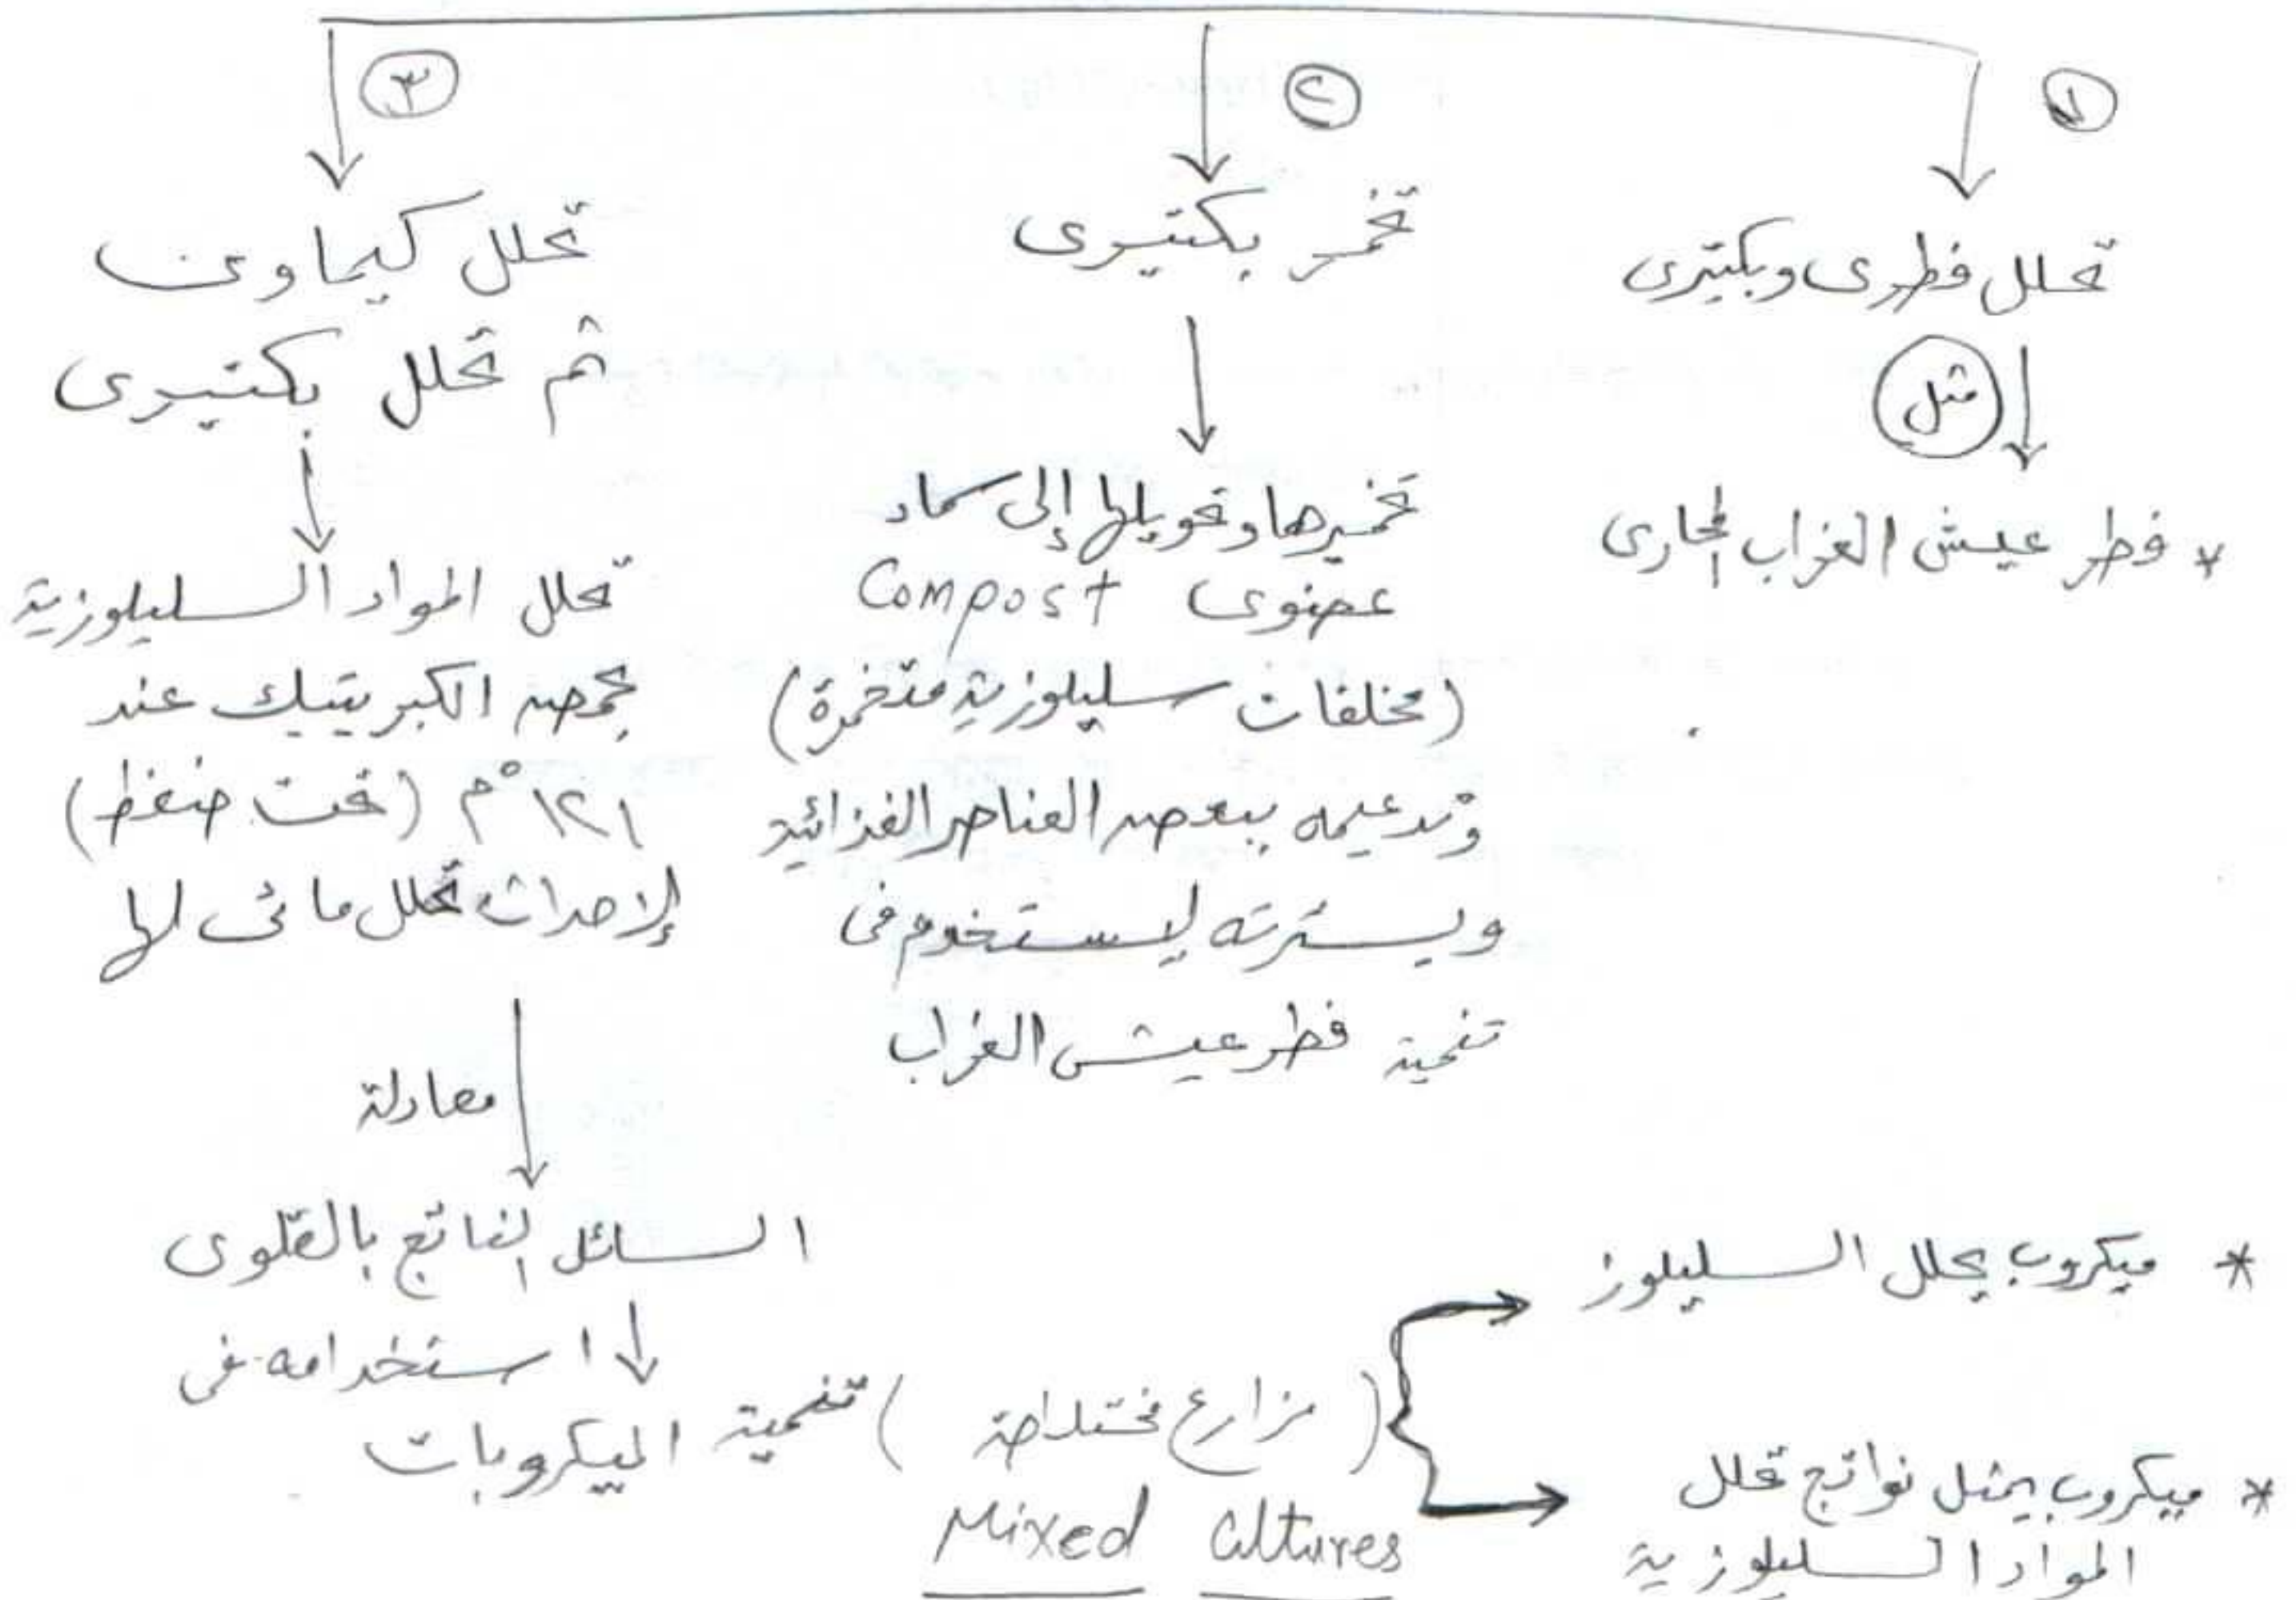 ١
تحلل فطرى وبكتيرى
مثل
* فطر عيش الغراب المحارى
٢
تخمر بكتيرى
تخميرها وتحويلها إلى سماد
عضوى Compost
(مخلفات سليلوزية متخمرة)
وتدعيمه ببعض العناصر الغذائية
وبسترته ليستخدم فى
تنمية فطر عيش الغراب
٣
تحلل كيماوى
ثم تحلل بكتيرى
تحلل المواد السليلوزية
بحمض الكبريتيك عند
١٢١ °م (تحت ضغط)
لإحداث تحلل مائى لها
معادلة
السائل الناتج بالقلوى
استخدامه فى
تنمية الميكروبات
(مزارع مختلطة)
Mixed Cultures
* ميكروب يحلل السليلوز
* ميكروب يمثل نواتج تحلل
المواد السليلوزية